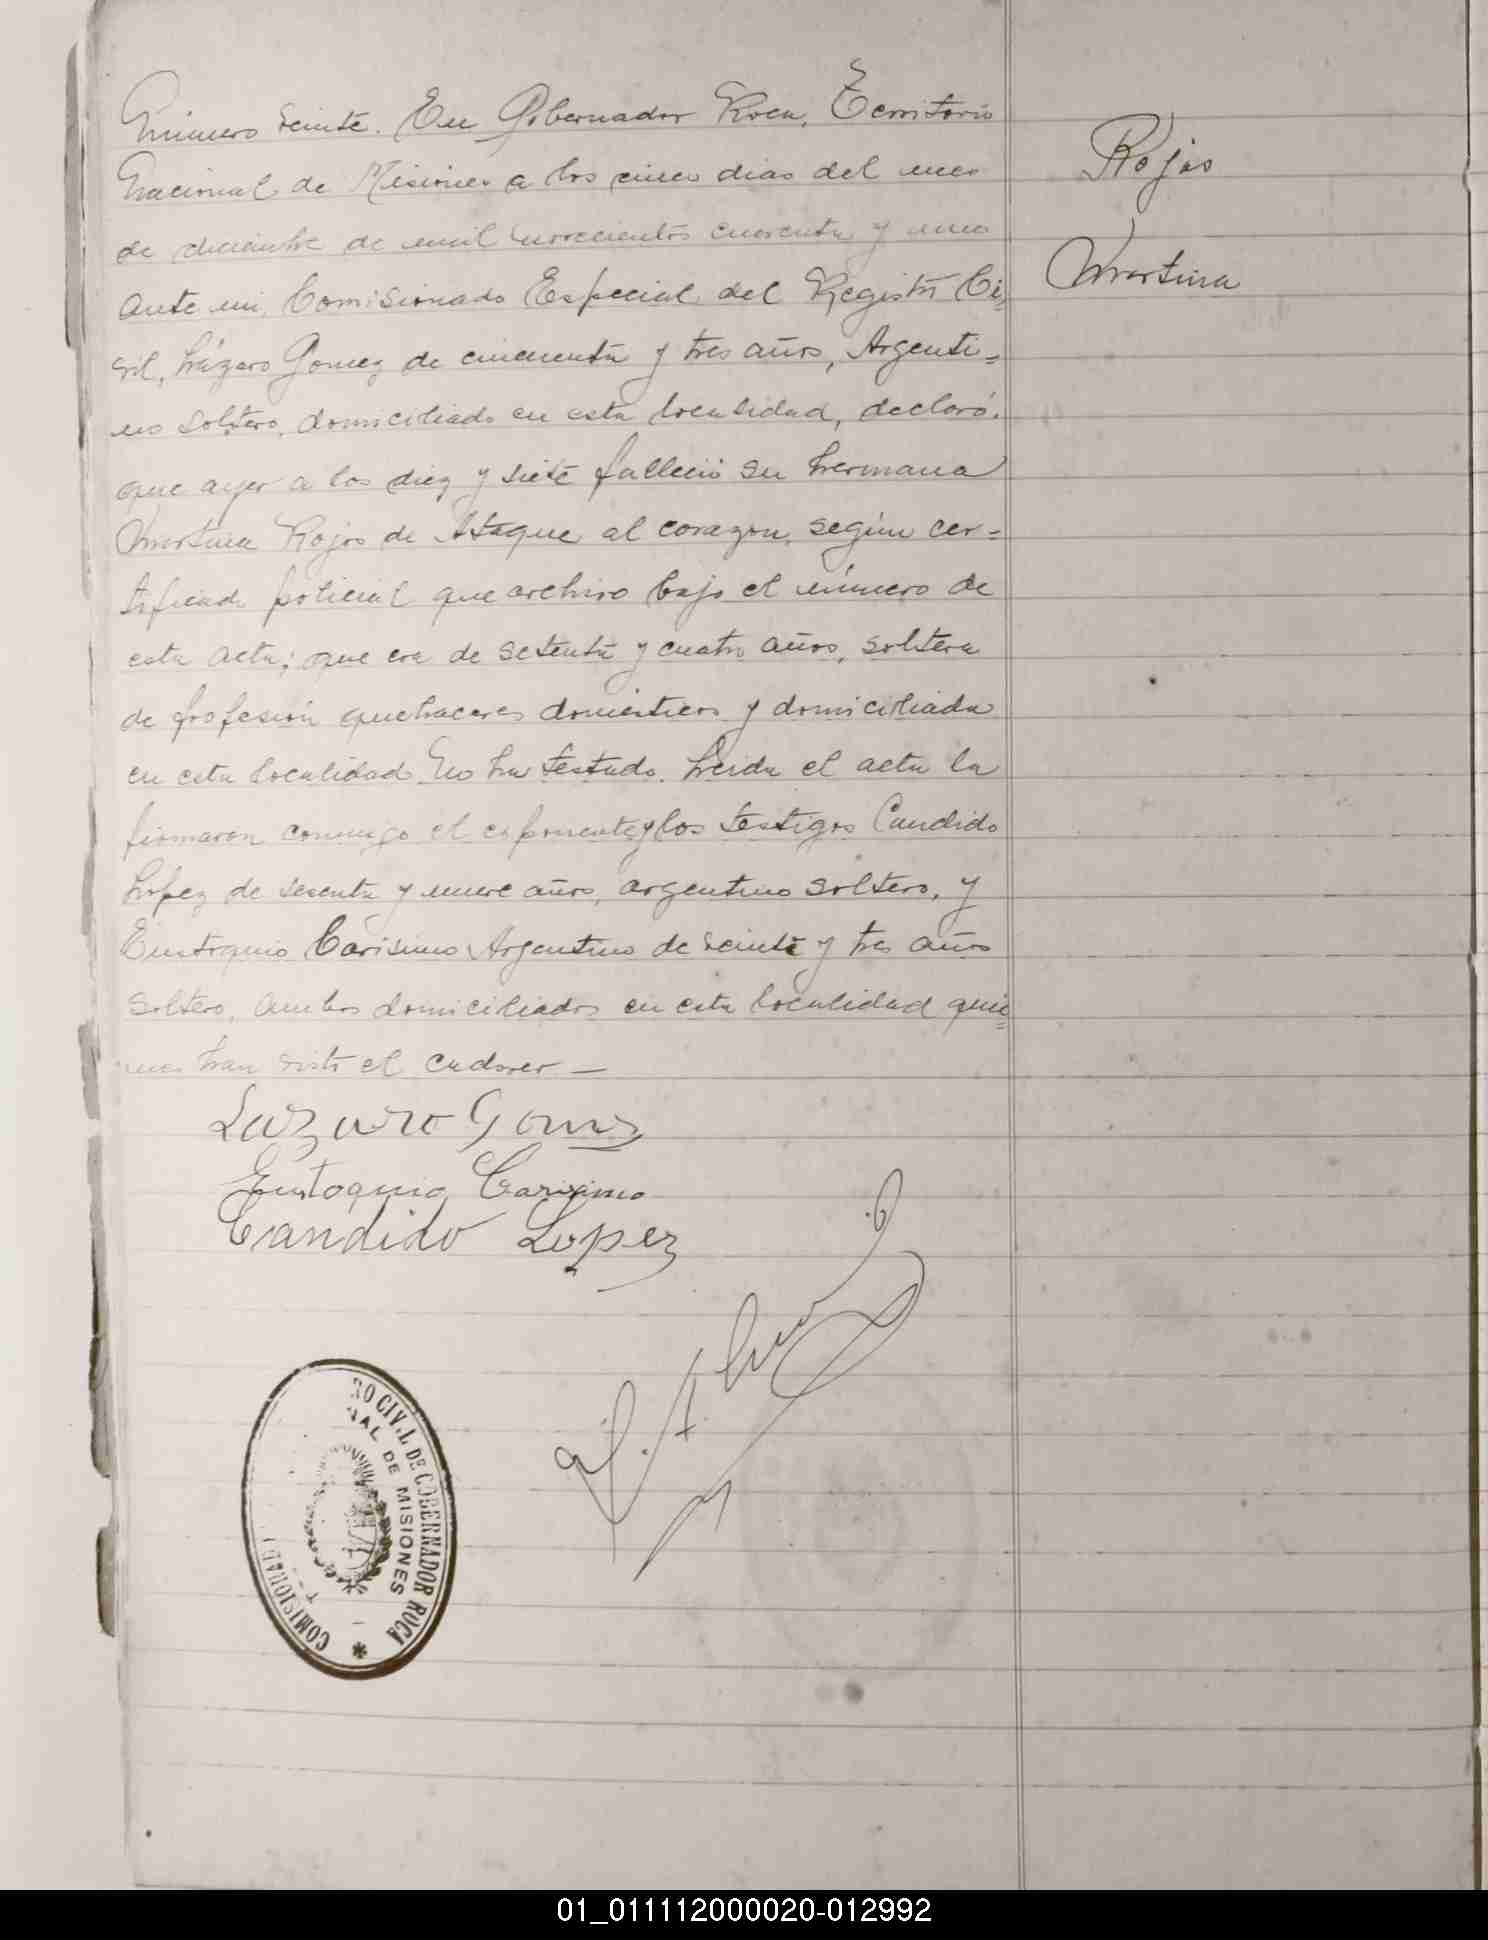 Número veinte. En Gobernador Roca, Territorio
Nacional de Misiones a los cinco dias del mes
de diciembre de mil novecientos cuarenta y uno
ante mi, Comisionado Especial del Registro Ci-
vil, Lázaro Gomez de cincuenta y tres años, Argenti=
no soltero, domiciliado en esta localidad, declaró.
que ayer a las diez y siete falleció su hermana
Martina Rojas de Ataque al corazon, según cer=
tificado policial que archivo bajo el número de
esta acta; que era de setenta y cuatro años, soltera
de profesión quehaceres domésticos y domiciliada
en esta localidad No ha testado. Leida el acta la
firmaron conmigo el exponente y los testigos Candido
Lopez de sesenta y nueve años, argentino soltero, y
Eustoquio Carisimo Argentino de veinte y tres años
soltero, ambos domiciliados en esta localidad quie=
nes han visto el cadaver —
Rojas
Martina
Lazaro Gomez
Eustoquio Carisimo
Candido Lopez
RO CIVIL DE GOBERNADOR ROCA
NAL DE MISIONES
COMISIONADO
01_011112000020-012992